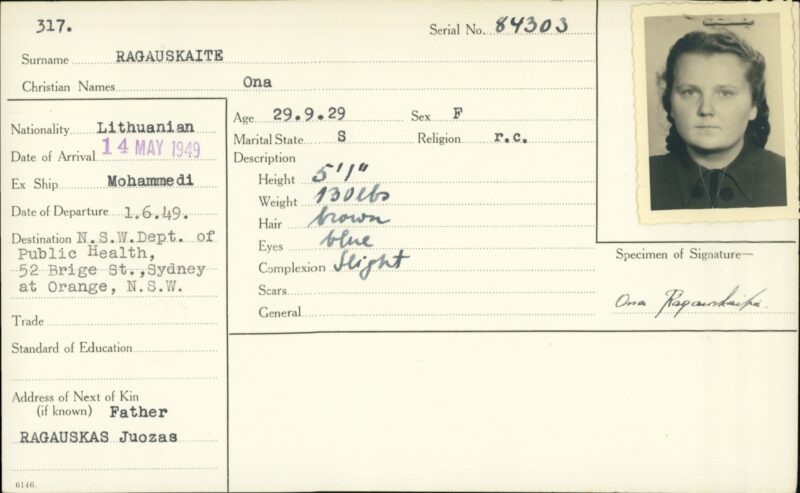 317.
Serial No. 84303
Surname RAGAUSKAITE
Christian Names Ona
Nationality Lithuanian
Date of Arrival 14 MAY 1949
Ex Ship Mohammedi
Date of Departure 1.6.49.
Destination N.S.W.Dept. of
Public Health,
52 Brige St.,Sydney
at Orange, N.S.W.
Trade
Standard of Education
Address of Next of Kin
(if known) Father
RAGAUSKAS Juozas
6146.
Age 29.9.29 Sex F
Marital State S Religion r.c.
Description
Height 5'1"
Weight 130lbs
Hair brown
Eyes blue
Complexion slight
Scars
General
Specimen of Signature—
Ona Ragauskaite.